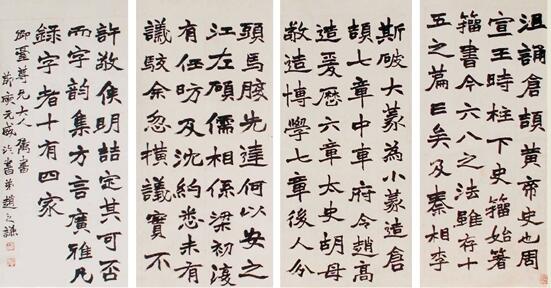 沮誦倉頡黃帝史也周
宣王時柱下史籀始著
籀書今六八之法雖存十
五之篇已矣及秦相李
斯破大篆為小篆造倉
頡七章中車府令趙高
造爰歷六章太史胡母
敬造博學七章後人分
頭馬先達何以安之
江左碩儒相係梁初復
有任昉及沈約悉未有
議駮余忽橫議實不
許敬侯明詰定其可否
而字韵集方言廣雅凡
錄字者十有四家
尊兄大人書
弟趙之謙